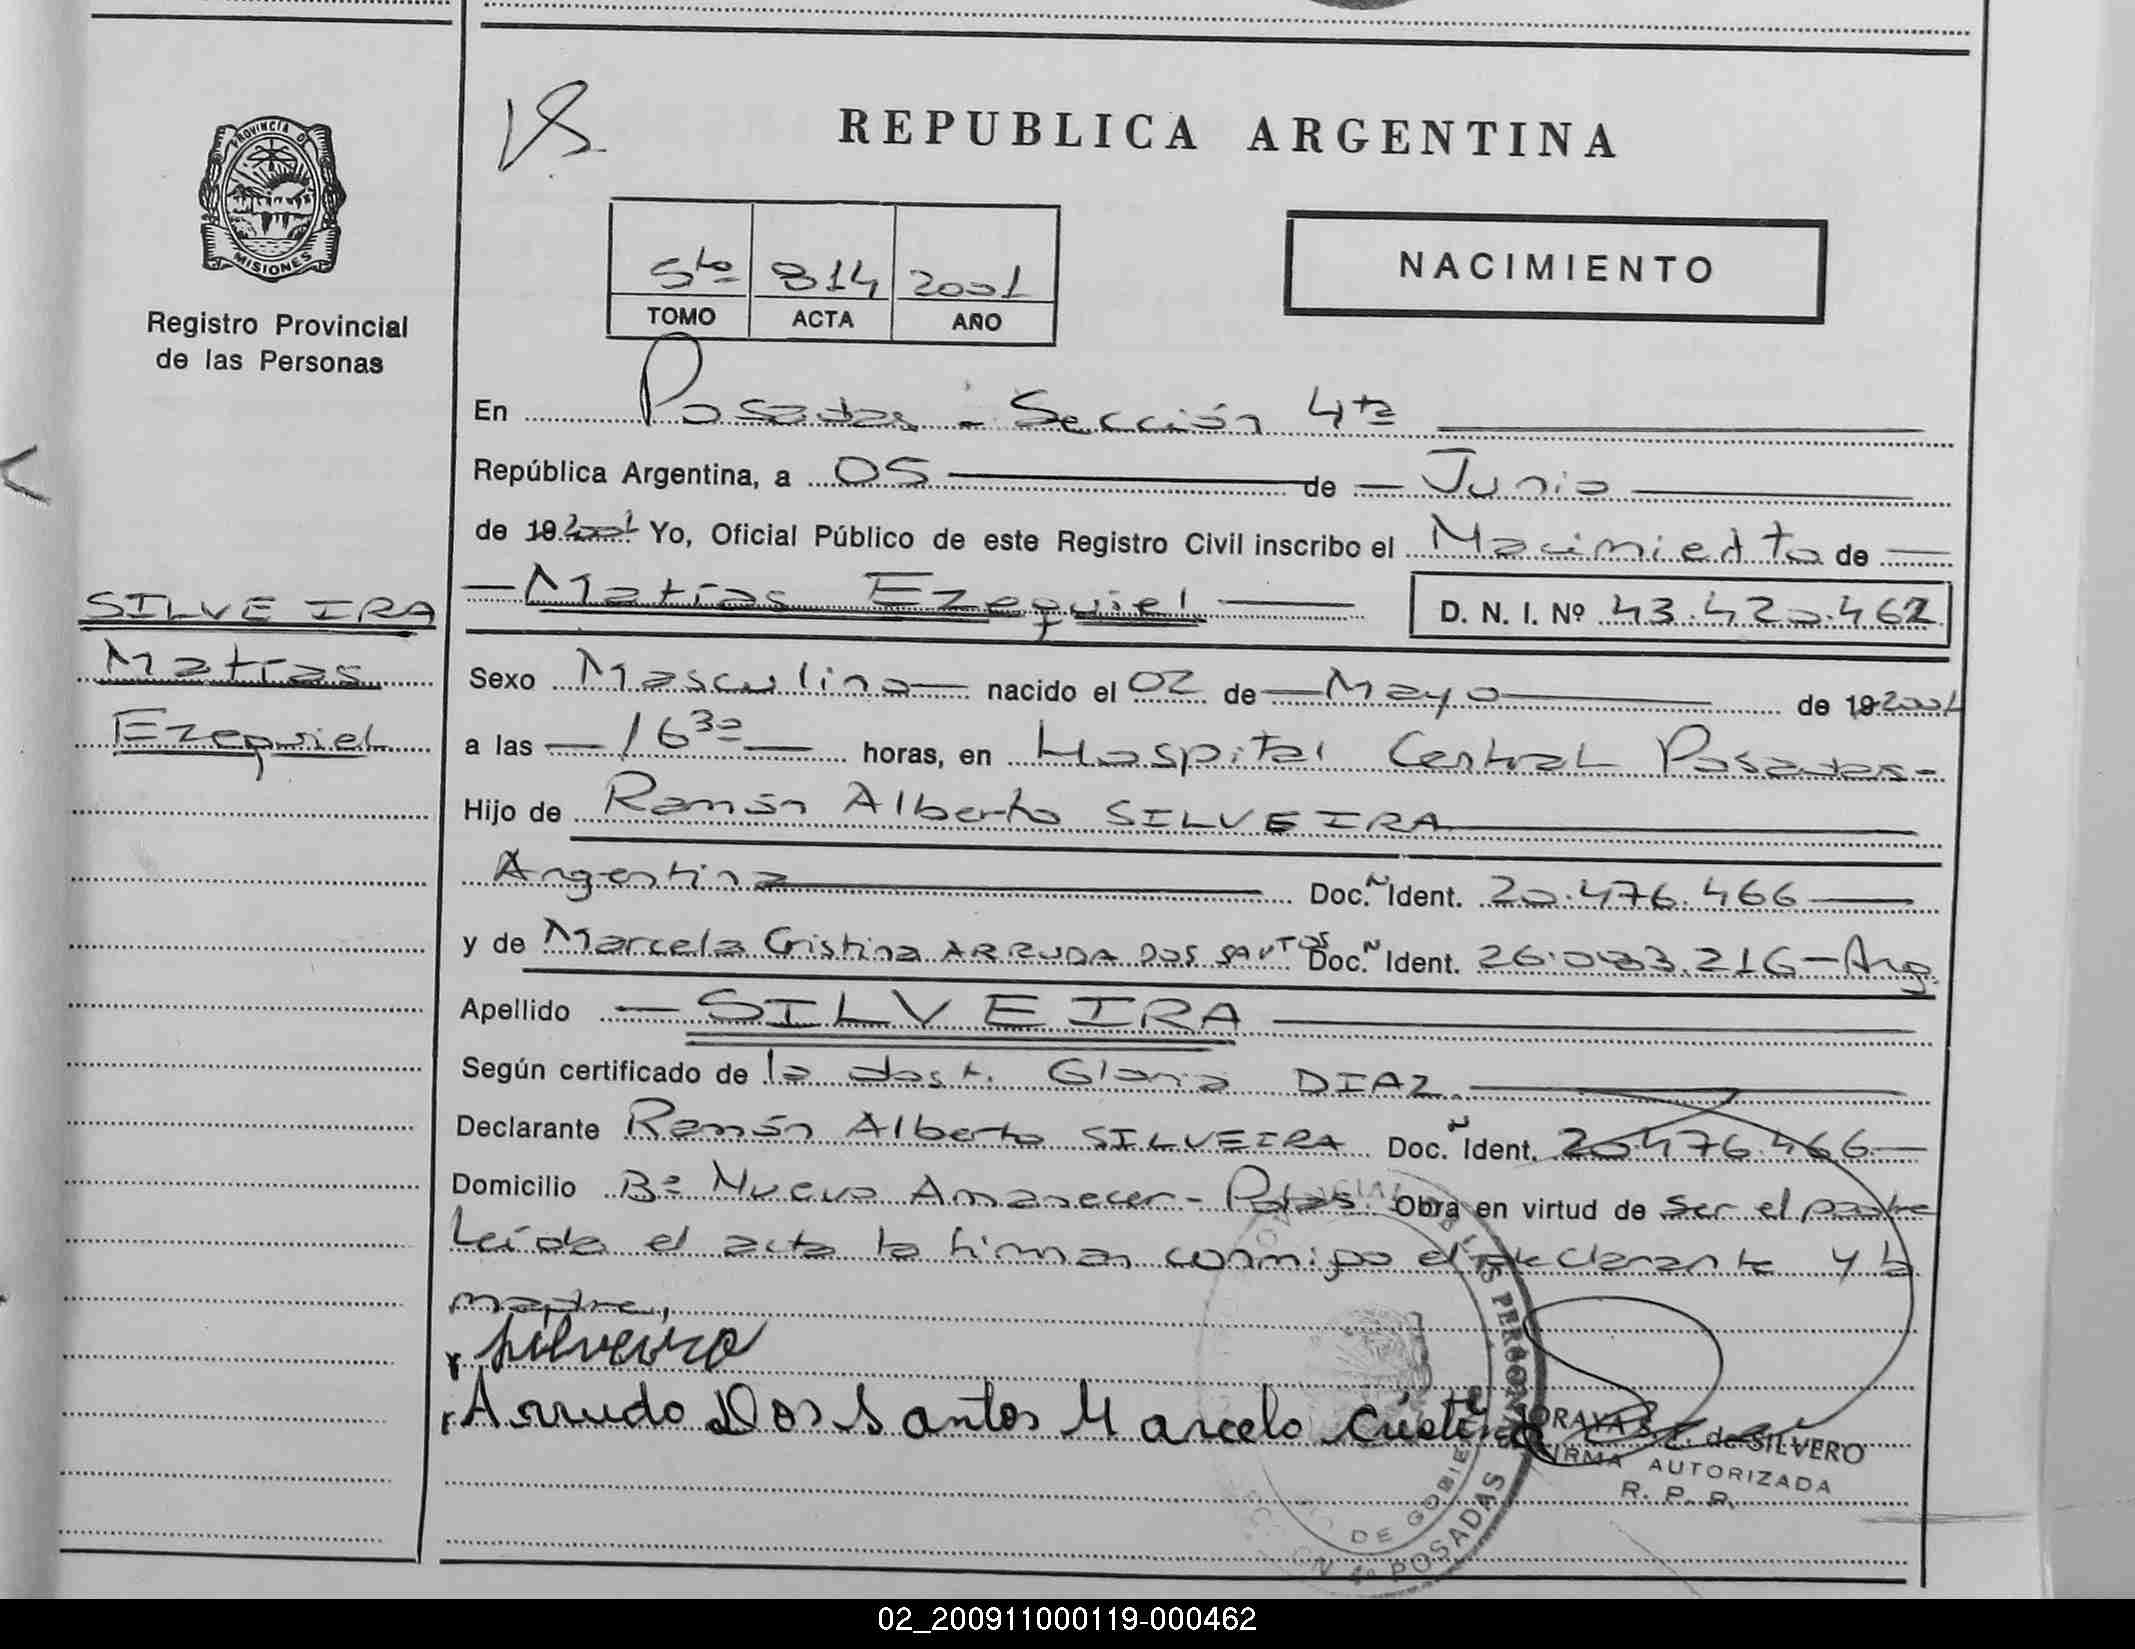 REPUBLICA ARGENTINA
PROVINCIA DE
MISIONES
Registro Provincial
de las Personas
5to 814 2001
TOMO ACTA AÑO
NACIMIENTO
En Posadas - Sección 4ta
República Argentina, a 05 de Junio
de 19 2001 Yo, Oficial Público de este Registro Civil inscribo el Nacimiento de
Matías Ezequiel D. N. I. Nº 43.420.462
SILVEIRA
Matías
Ezequiel
Sexo Masculino nacido el 02 de Mayo de 19 2001
a las 16 30 horas, en Hospital Central Posadas-
Hijo de Ramón Alberto SILVEIRA
Argentina Doc. Ident. 20.476.466
y de Marcela Cristina ARRUDA DOS SANTOS Doc. Ident. 26.083.216 - Arg.
Apellido SILVEIRA
Según certificado de la obst. Gloria DIAZ.
Declarante Ramón Alberto SILVEIRA Doc. Ident. 20.476.466
Domicilio Bº Nuevo Amanecer - Pdas. Obra en virtud de ser el padre
Leída el acta la firman conmigo el declarante y la
madre,
Silveira
Arruda Dos Santos Marcela Cristina
SORAYA S. Z. de SILVERO
FIRMA AUTORIZADA
R. P. P.
DE GOBIE
POSADAS
02_200911000119-000462